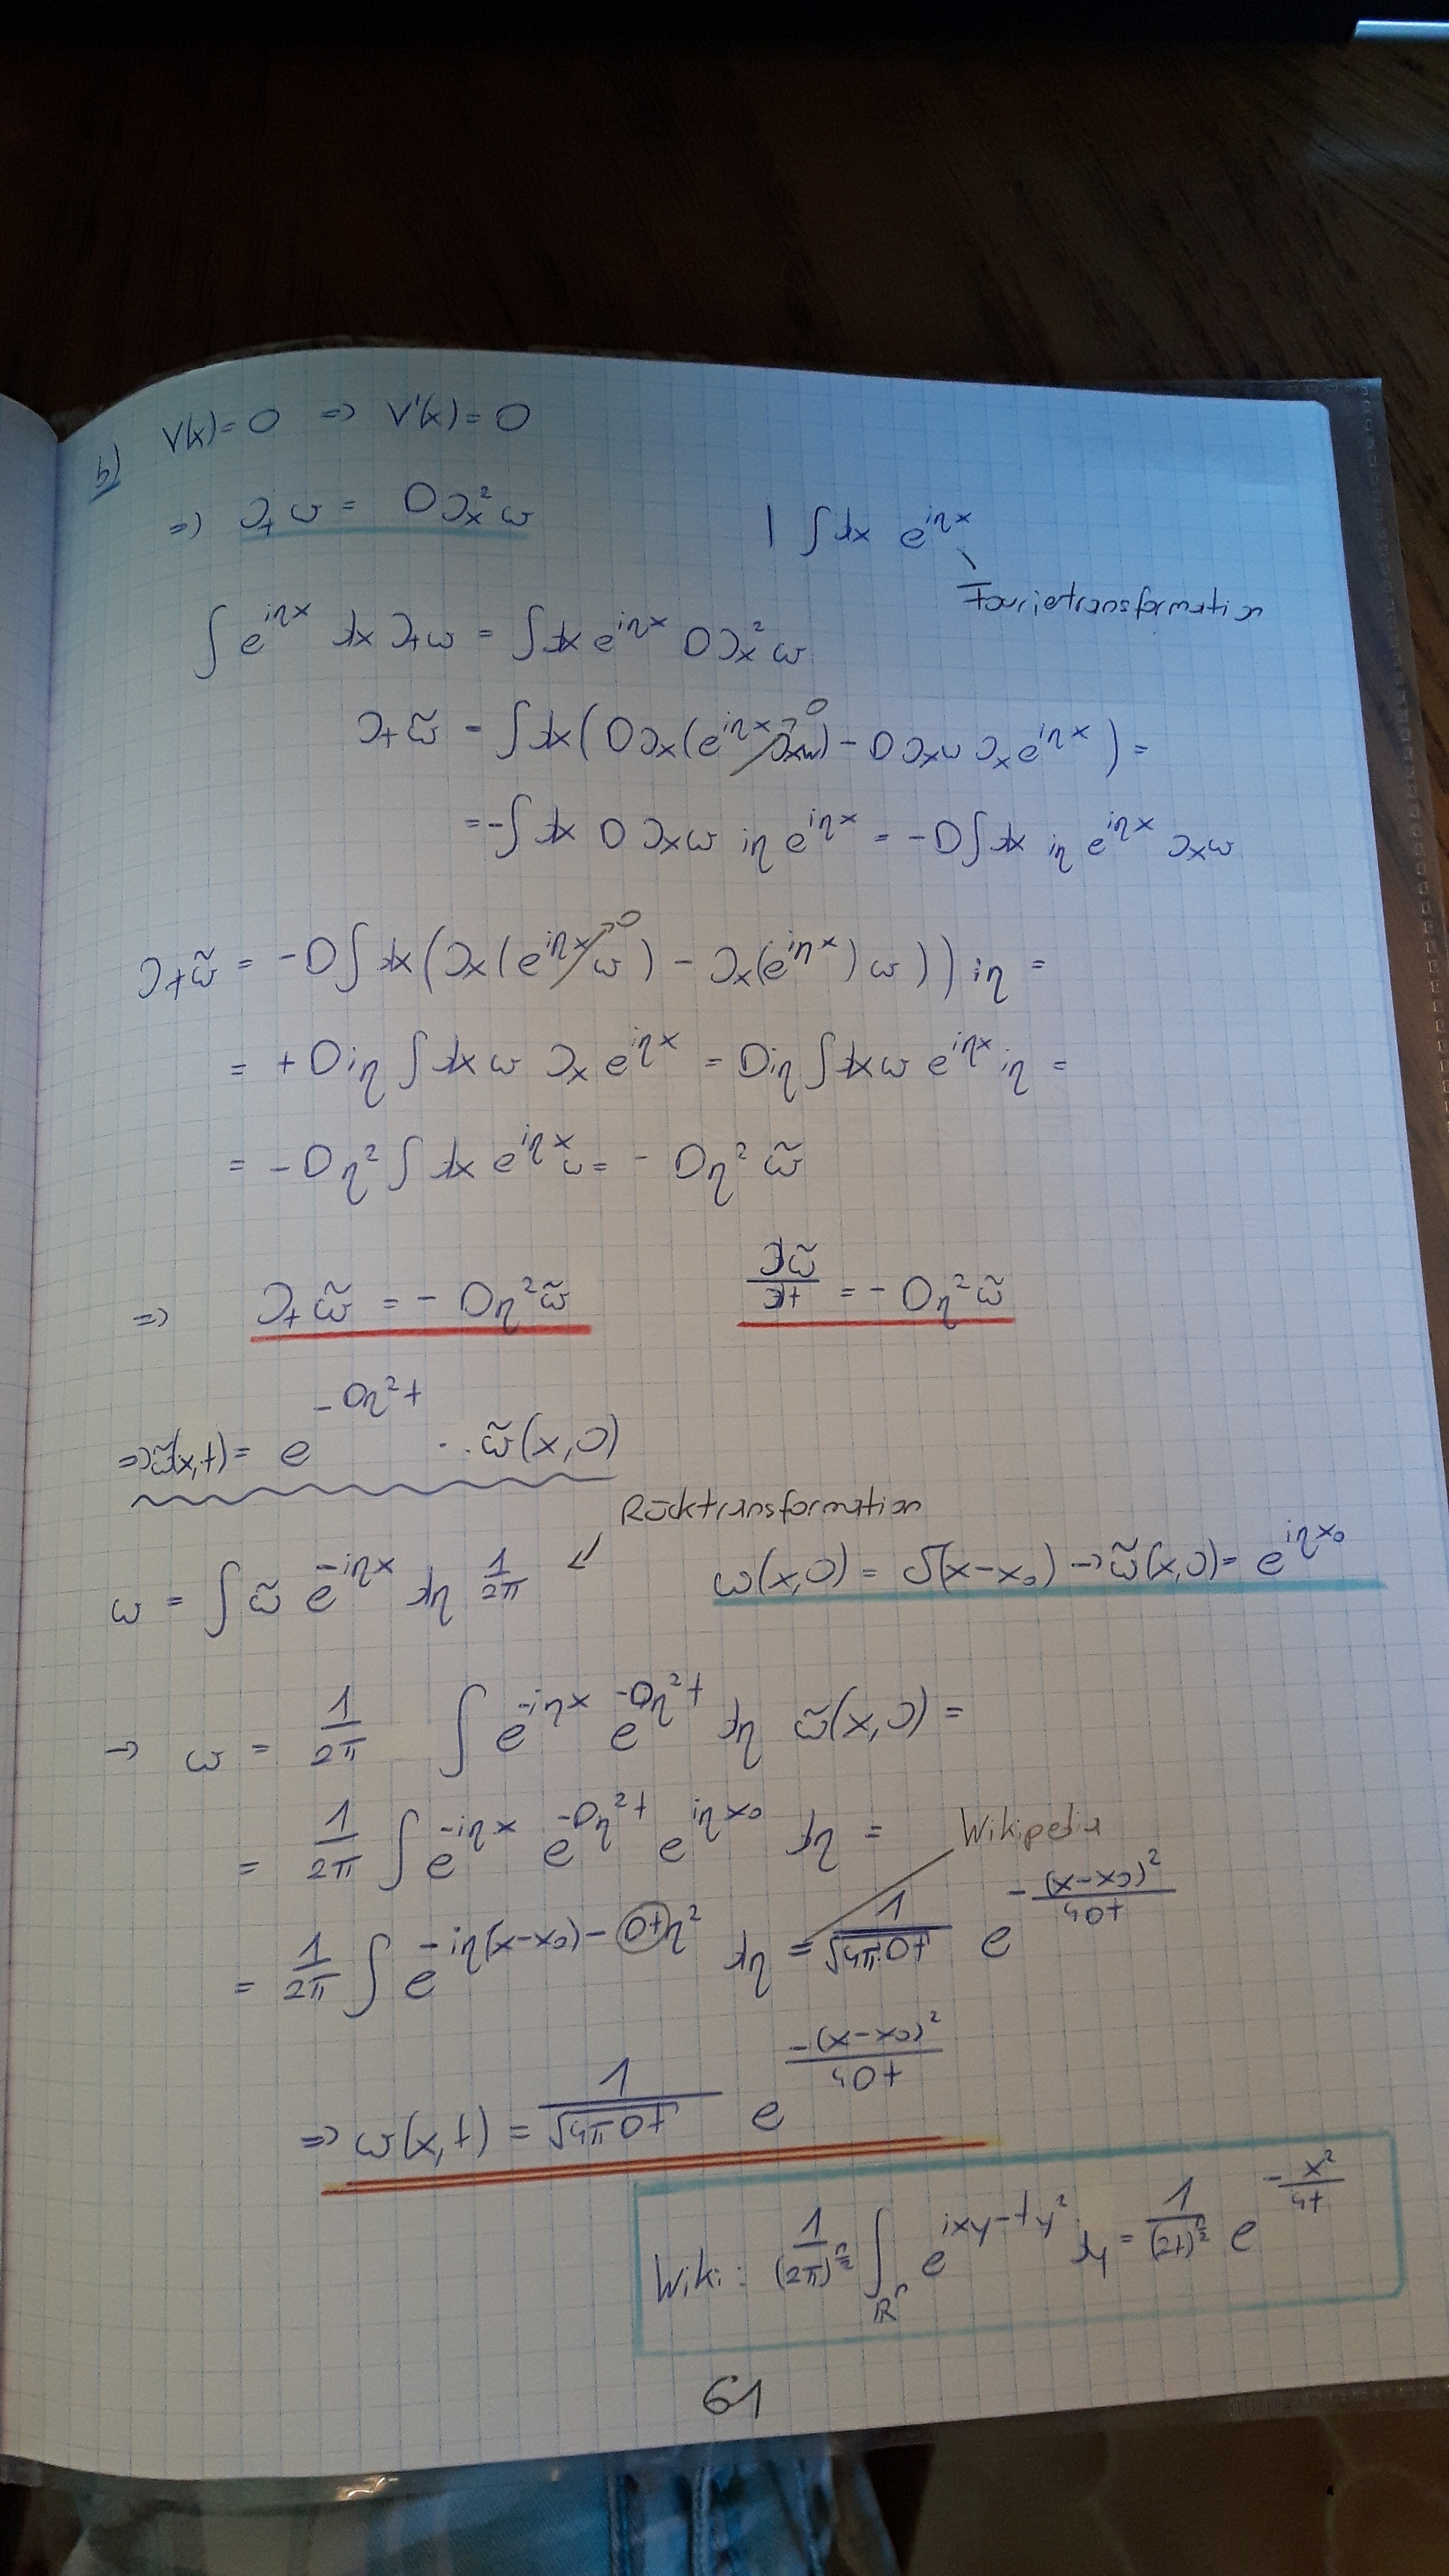 b) V(x)=0 ⇒ V'(x)=0
⇒ ∂ₜω = D∂ₓ²ω | ∫dx e^{iηx}
Fourietransformation
∫e^{iηx} dx ∂ₜω = ∫dx e^{iηx} D∂ₓ²ω
∂ₜω̃ = ∫dx(D∂ₓ(e^{iηx}∂ₓω)→0 − D∂ₓω ∂ₓe^{iηx}) =
=-∫dx D∂ₓω iη e^{iηx} = -D∫dx iη e^{iηx} ∂ₓω
∂ₜω̃ = -D∫dx(∂ₓ(e^{iηx}ω)→0 − ∂ₓ(e^{iηx})ω)) iη =
= +Diη∫dx ω ∂ₓe^{iηx} = Diη∫dx ω e^{iηx} iη =
= -Dη²∫dx e^{iηx}ω = -Dη² ω̃
⇒ ∂ₜω̃ = -Dη²ω̃ dω̃/dt = -Dη²ω̃
⇒ω̃(x,t) = e^{-Dη²t} · ω̃(x,0)
Rücktransformation
ω = ∫ω̃ e^{-iηx} dη 1/2π ↙ ω(x,0) = δ(x-x₀) → ω̃(x,0) = e^{iηx₀}
→ ω = 1/2π ∫e^{-iηx} e^{-Dη²t} dη ω̃(x,0) =
= 1/2π ∫e^{-iηx} e^{-Dη²t} e^{iηx₀} dη = Wikipedia
= 1/2π ∫e^{-iη(x-x₀)-Dtη²} dη = 1/√(4πDt) e^{-(x-x₀)²/4Dt}
⇒ ω(x,t) = 1/√(4πDt) e^{-(x-x₀)²/4Dt}
Wiki: 1/(2π)^{n/2} ∫_{ℝⁿ} e^{ixy-ty²} dy = 1/(2t)^{n/2} e^{-x²/4t}
61